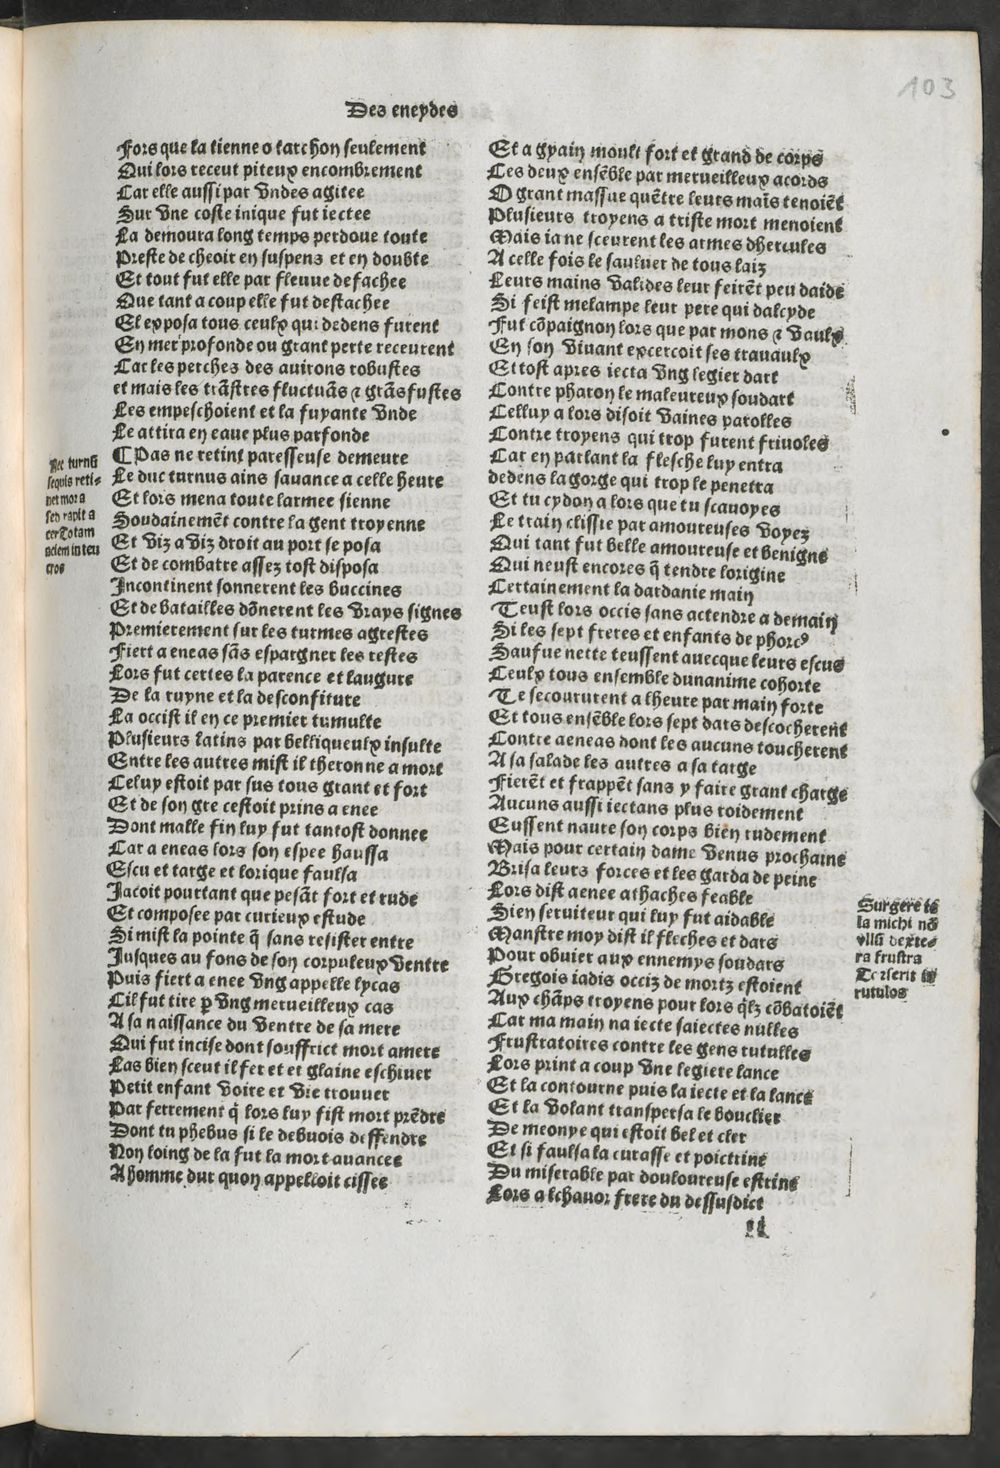 103
Des eneydes
Fors que la tienne o tarchon seulement
Qui lors receut piteux encombrement
Car elle aussi par vndes agitee
Sur vne coste inique fut iectee
La demoura long temps perdoue toute
Preste de cheoir en suspens et en doubte
Et tout fut elle par fleuue defachee
Que tant a coup elle fut destachee
El exposa tous ceulx qui dedens furent
En mer profonde ou grant perte receurent
Car les perches des auirons robustes
et mais les trãstres fluctuãs ⁊ grãs fustes
Les empeschoient et la fuyante vnde
Le attira en eaue plus parfonde
¶ Pas ne retint paresseuse demeure
Le duc turnus ains sauance a celle heure
Et lors mena toute larmee sienne
Soudainemẽt contre la gent troyenne
Et viz a viz droit au port se posa
Et de combatre assez tost disposa
Incontinent sonnerent les buccines
Et de batailles dõnerent les vrays signes
Premierement sur les turmes agrestes
Fiert aeneas sãs espargner les restes
Lors fut certes la parence et laugure
De la ruyne et la desconfiture
La occist il en ce premier tumulte
Plusieurs latins par belliqueulx insulte
Entre les autres mist il theronne a mort
Celuy estoit par sus tous grant et fort
Et de son gre cestoit prins a enee
Dont malle fin luy fut tantost donnee
Car aeneas lors son espee haussa
Escu et targe et lorique faulsa
Jacoit pourtant que pesãt fort et rude
Et composee par curieux estude
Si mist la pointe q̃ sans resister entre
Jusques au fons de son corpuleux ventre
Puis fiert aenee vng appelle lycas
Cil fut tire ꝑ vng merueilleux cas
A sa naissance du ventre de sa mere
Qui fut incise dont souffrict mort amere
Las bien sceut il fer et et glaine eschiuer
Petit enfant voire et vie trouuer
Par ferrement q̃ lors luy fist mort prẽdre
Dont tu phebus si le debuois deffendre
Non loing de la fut la mort auancee
A homme dur quon appelloit cissee
Nec turnũ
sequis reti-
net mora
sed rapit a
cer Totam
aciem in teu
cros
Et a gyain moult fort et grand de corps
Ces deux ensẽble par merueilleux acords
O grant massue quẽtre leurs maĩs tenoiẽt
Plusieurs troyens a triste mort menoient
Mais ia ne sceurent les armes dhercules
A celle fois le sauluer de tous laiz
Leurs mains valides leur feirẽt peu daide
Si feist melampe leur pere qui dalcyde
Fut cõpaignon lors que par mons ⁊ vaulx
En son viuant excercoit ses trauaulx
Et tost apres iecta vng legier dart
Contre pharon le maleureux soudart
Celluy a lors disoit vaines parolles
Contre troyens qui trop furent friuoles
Car en parlant la flesche luy entra
dedens la gorge qui trop le penetra
Et tu cydon a lors que tu scauoyes
Le train clissie par amoureuses voyez
Qui tant fut belle amoureuse et benigne
Qui neust encores q̃ tendre lorigine
Certainement la dardanie main
Teust lors occis sans actendre a demain
Si les sept freres et enfants de phorcꝰ
Saufue nette teussent auecque leurs escus
Ceulx tous ensemble dunanime cohorte
Te secoururent a lheure par main forte
Et tous ensẽble lors sept dars descocherent
Contre aeneas dont les aucuns toucherent
A sa salade les autres a sa targe
Fierẽt et frappẽt sans y faire grant charge
Aucuns aussi iectans plus roidement
Eussent naure son corps bien rudement
Mais pour certain dame venus prochaine
Brisa leurs forces et les garda de peine
Lors dist aenee athaches feable
Sien seruiteur qui luy fut aidable
Manstre moy dist il fleches et dars
Pour obuier aux ennemys soudars
Gregois iadis occiz de mortz estoient
Aux chãps troyens pour lors q̃lz cõbatoiẽt
Car ma main na iecte saiectes nulles
Frustratoires contre les gens rutulles
Lors print a coup vne legiere lance
Et la contourne puis la iecte et la lance
Et la volant transpersa le bouclier
De meonye qui estoit bel et cler
Et si faulsa la curasse et poictrine
Du miserable par douloureuse estrine
Lors alchauor frere du dessusdict
Surgere te
la michi nõ
vllũ dexte-
ra frustra
Torserit ĩ
rutulos